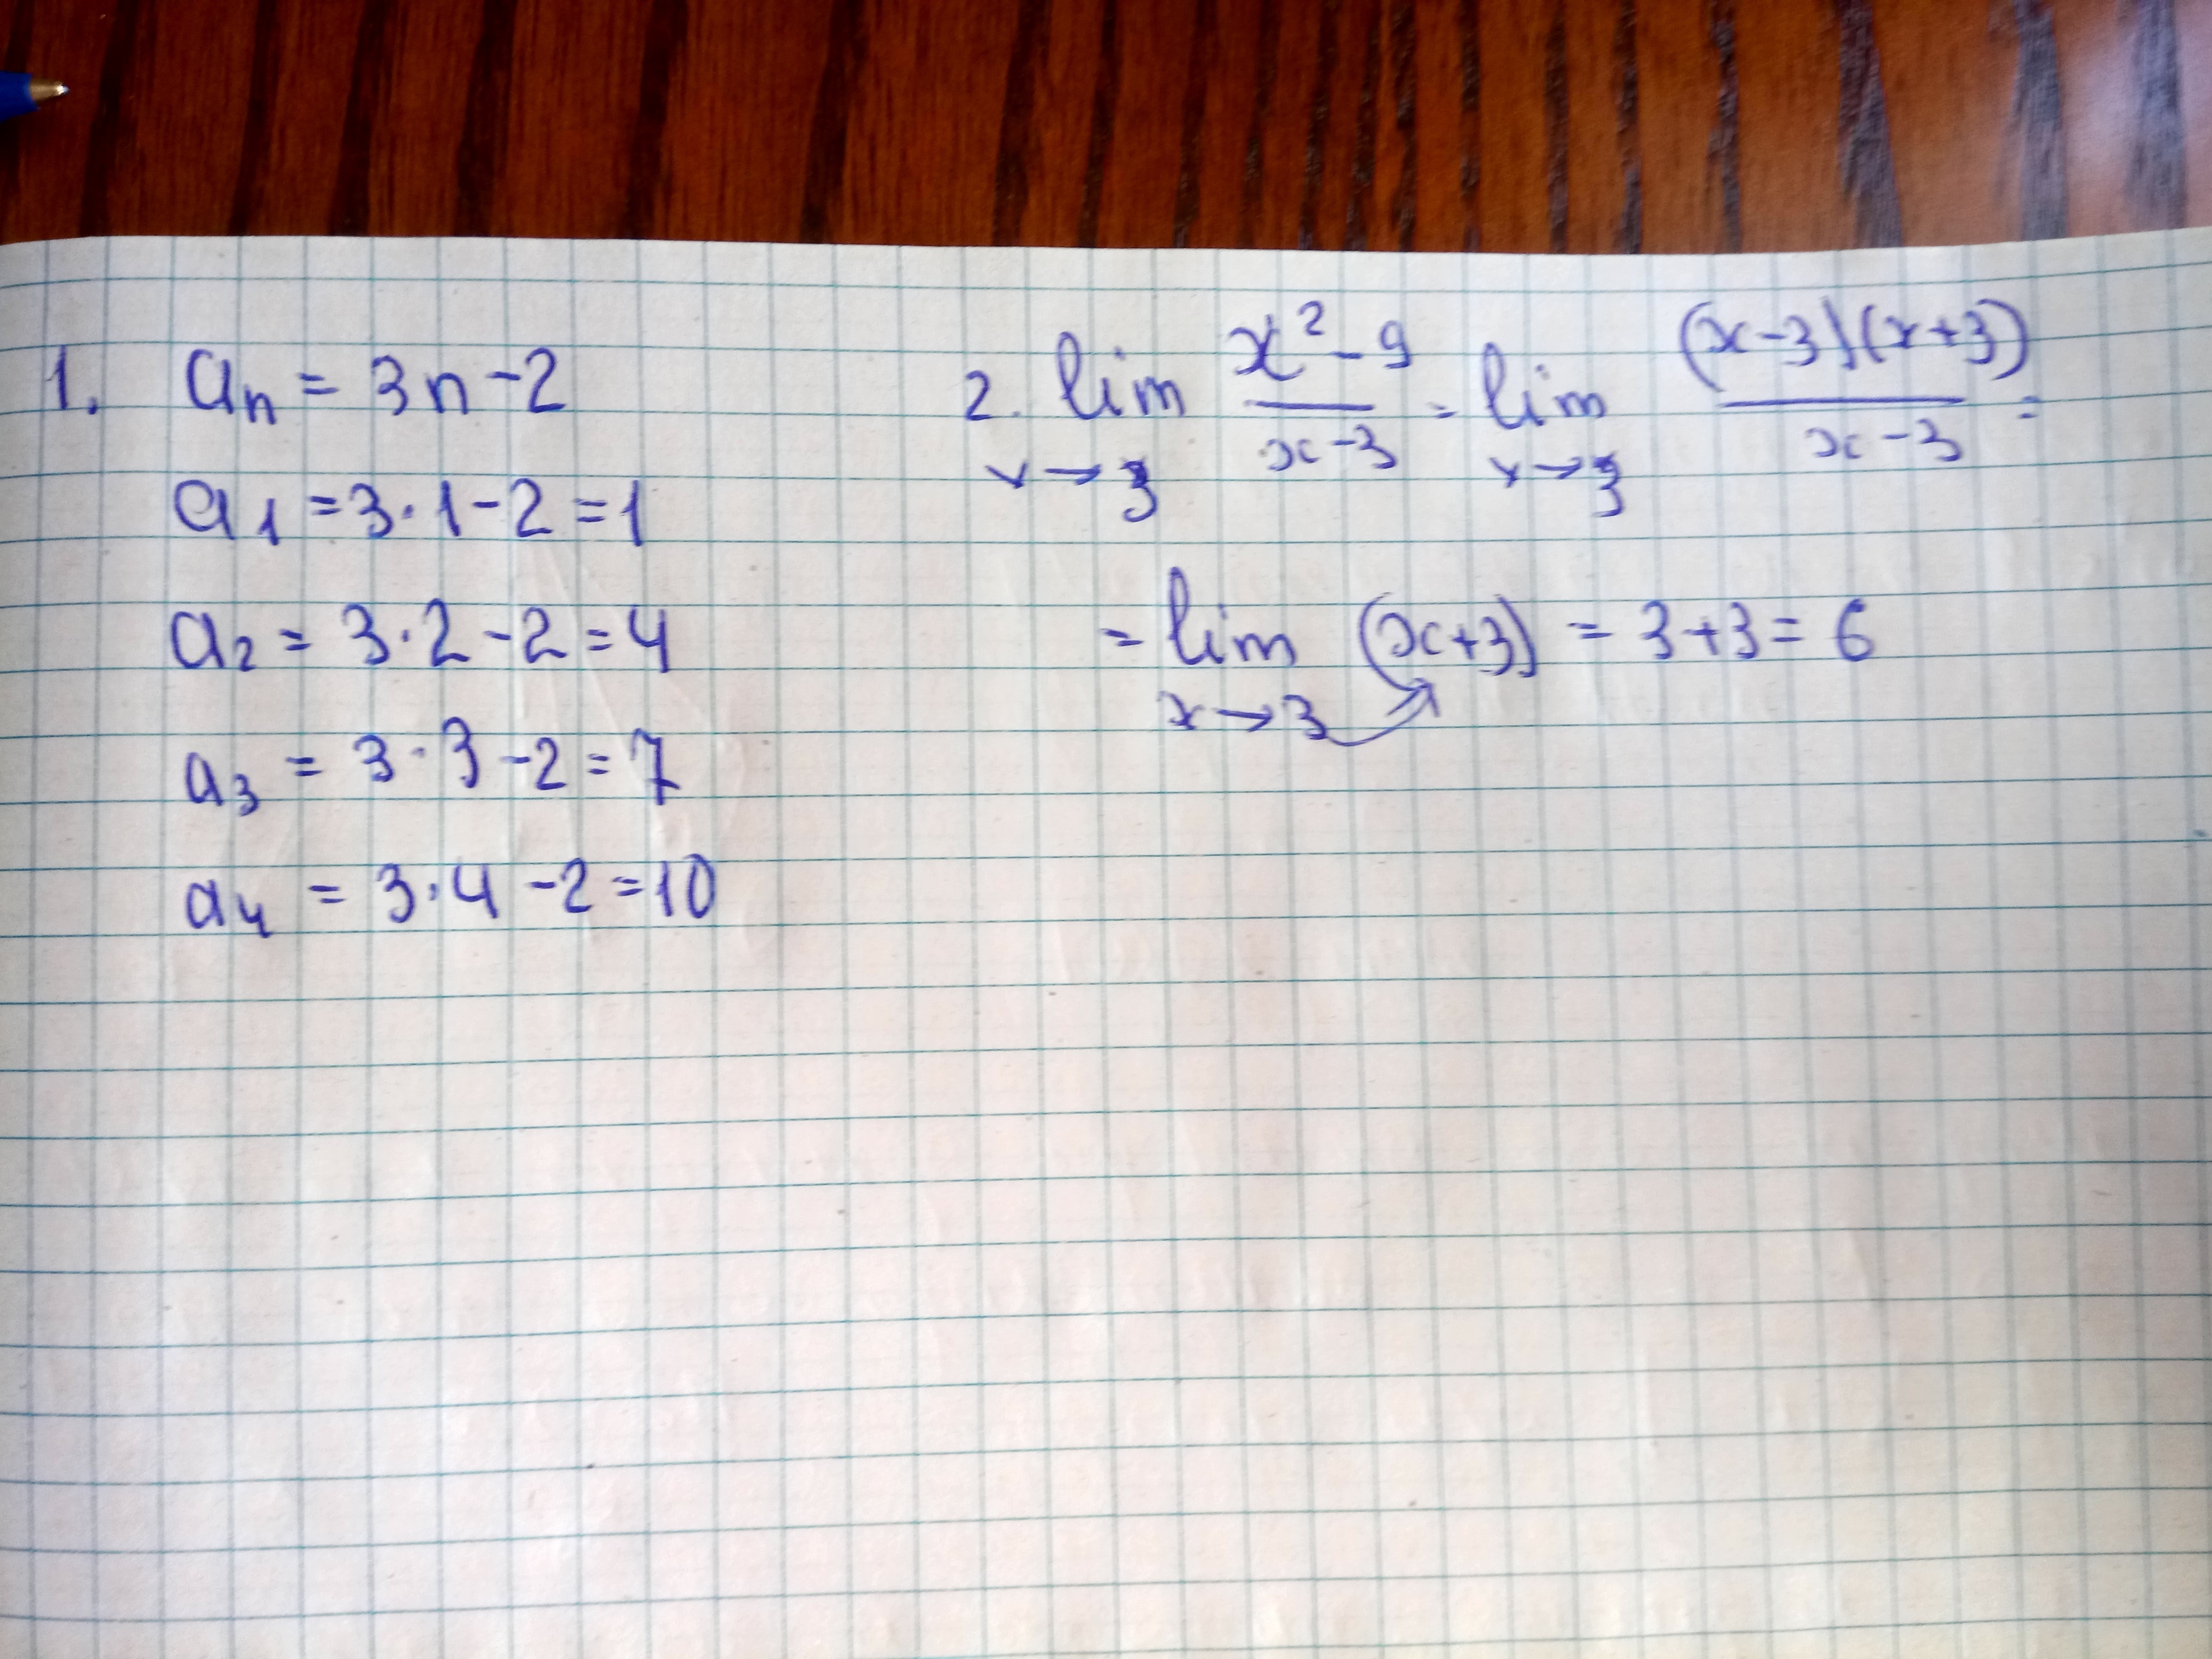 1. aₙ = 3n - 2
a₁ = 3·1 - 2 = 1
a₂ = 3·2 - 2 = 4
a₃ = 3·3 - 2 = 7
a₄ = 3·4 - 2 = 10
2. lim x→3 (x² - 9)/(x - 3) = lim x→3 ((x - 3)(x + 3))/(x - 3) =
= lim x→3 (x + 3) = 3 + 3 = 6